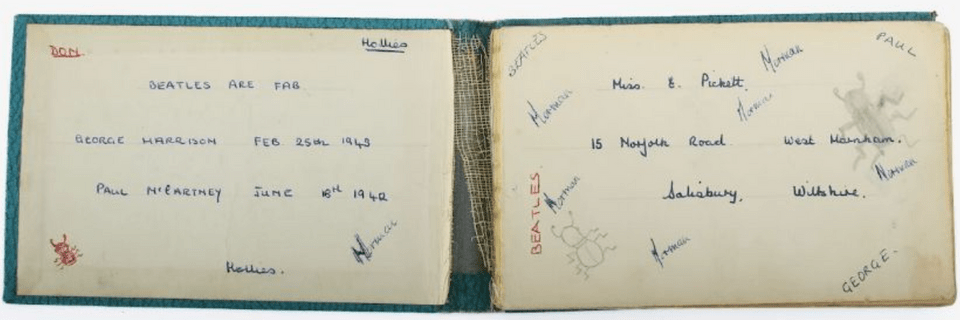 DON
Hollies
BEATLES ARE FAB
GEORGE HARRISON FEB 25th 1943
PAUL McCARTNEY JUNE 18th 1942
Norman
Hollies.
BEATLES
Norman
PAUL
Miss. E. Pickett.
Norman
Norman
15 Norfolk Road West Harnham.
Norman
Salisbury, Wiltshire.
Norman
BEATLES
Norman
GEORGE.